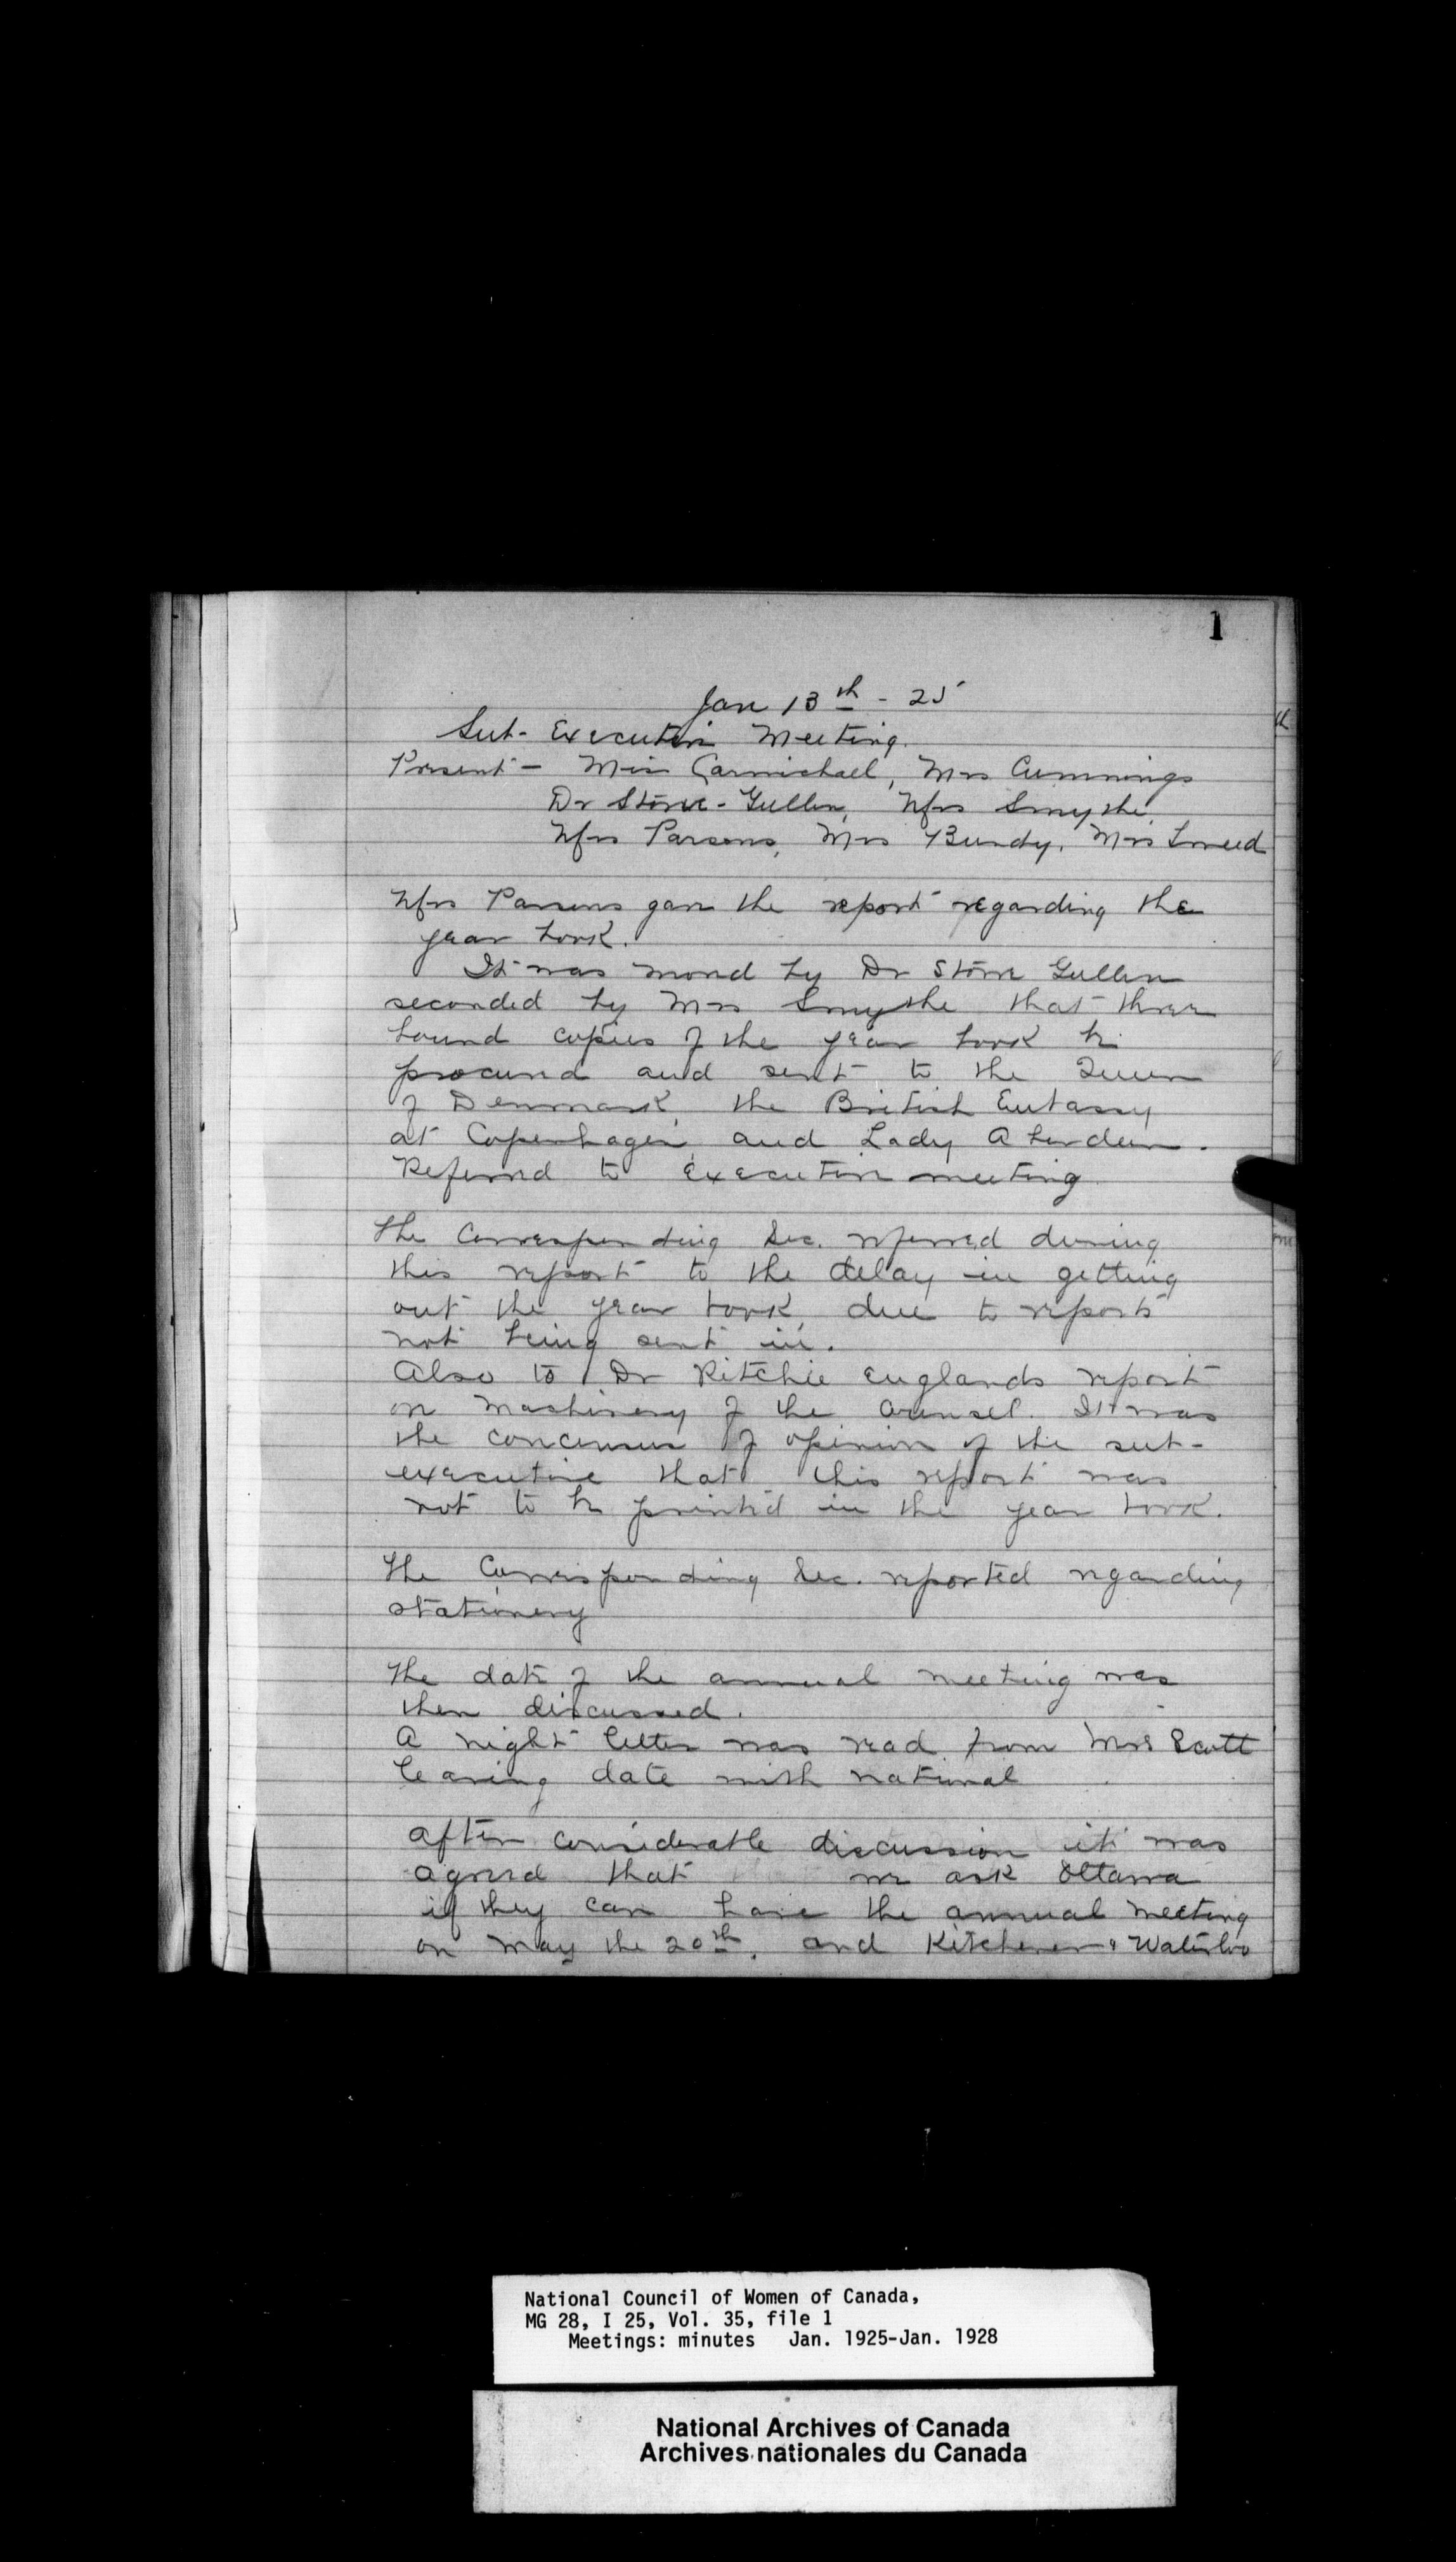 1
Jan 13th - 25
Sub-Executive Meeting.
Present - Miss Carmichael, Mrs Cummings
Dr Stowe-Gullen, Mrs Smythe,
Mrs Parsons, Mrs Bundy, Mrs
Mrs Parsons gave the report regarding the
year book.
It was moved by Dr Stowe Gullen
seconded by Mrs Smythe that three
bound copies of the year book be
procured and sent to the Queen
of Denmark, the British Embassy
at Copenhagen, and Lady Aberdeen.
Referred to executive meeting
The Corresponding Sec. referred during
this report to the delay in getting
out the year book, due to reports
not being sent in.
Also to Dr Ritchie Englands report
on Machinery of the Counsel. It was
the concensus of opinion of the sub-
executive that this report was
not to be printed in the year book.
The Corresponding Sec. reported regarding
stationery
The date of the annual meeting was
then discussed.
A night letter was read from Mrs Scott
leaving date with national
After considerable discussion it was
agreed that we ask Ottawa
if they can have the annual meeting
on May the 20th, and Kitchener & Waterloo
National Council of Women of Canada,
MG 28, I 25, Vol. 35, file 1
Meetings: minutes Jan. 1925-Jan. 1928
National Archives of Canada
Archives nationales du Canada